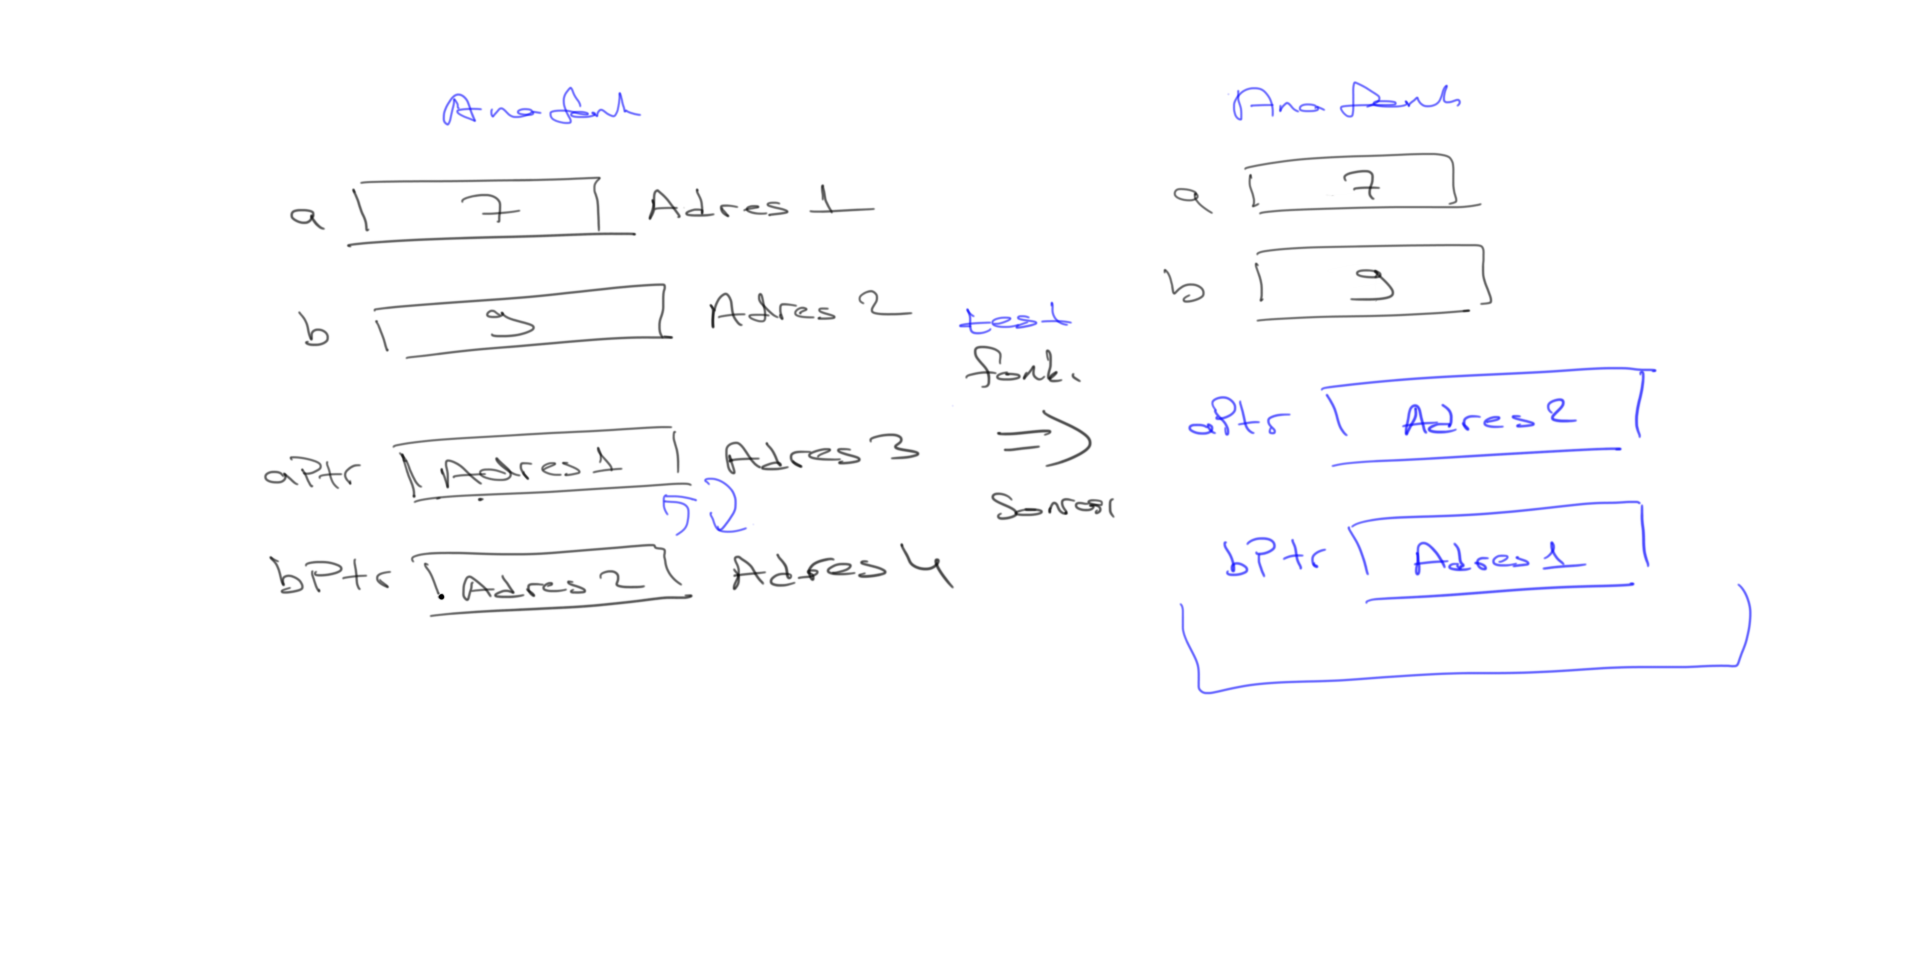 Ana fonk
a 7 Adres 1
b 9 Adres 2
aPtr Adres 1 Adres 3
bPtr Adres 2 Adres 4
test
fonk.
=>
Sonrası
Ana fonk
a 7
b 9
aPtr Adres 2
bPtr Adres 1